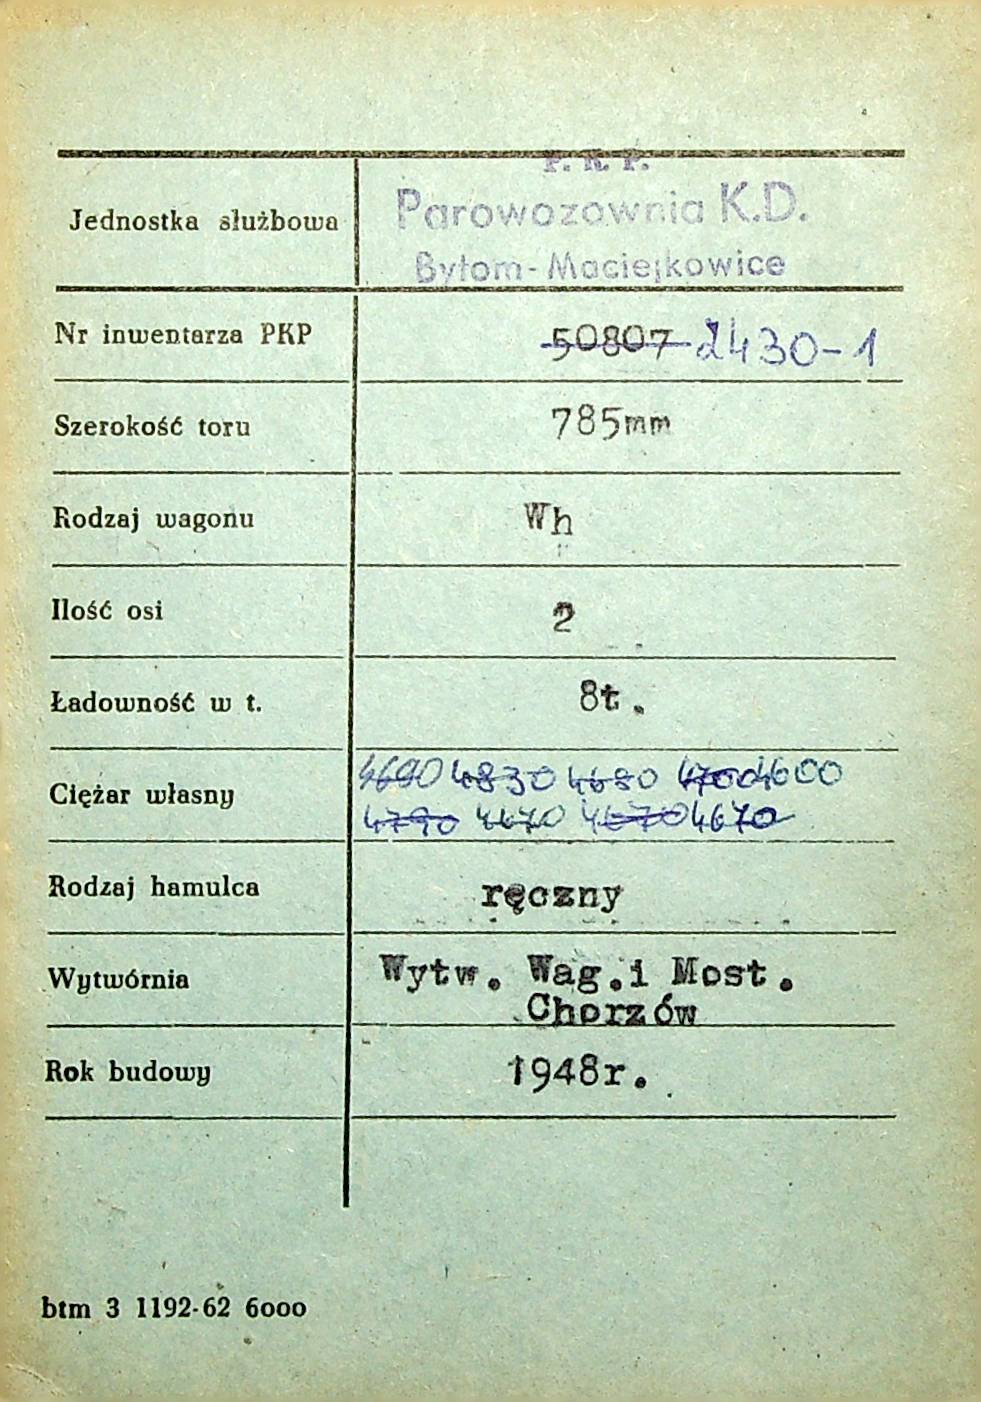 P. K. P.
Jednostka służbowa Parowozownia K.D.
Bytom-Maciejkowice
Nr inwentarza PKP 50807 2430-1
Szerokość toru 785mm
Rodzaj wagonu Wh
Ilość osi 2
Ładowność w t. 8t.
4690 4830 4680 4700 4600
Ciężar własny
4790 4470 4670 4670
Rodzaj hamulca ręczny
Wytwórnia Wytw. Wag.i Most.
Chorzów
Rok budowy 1948r.
btm 3 1192-62 6000